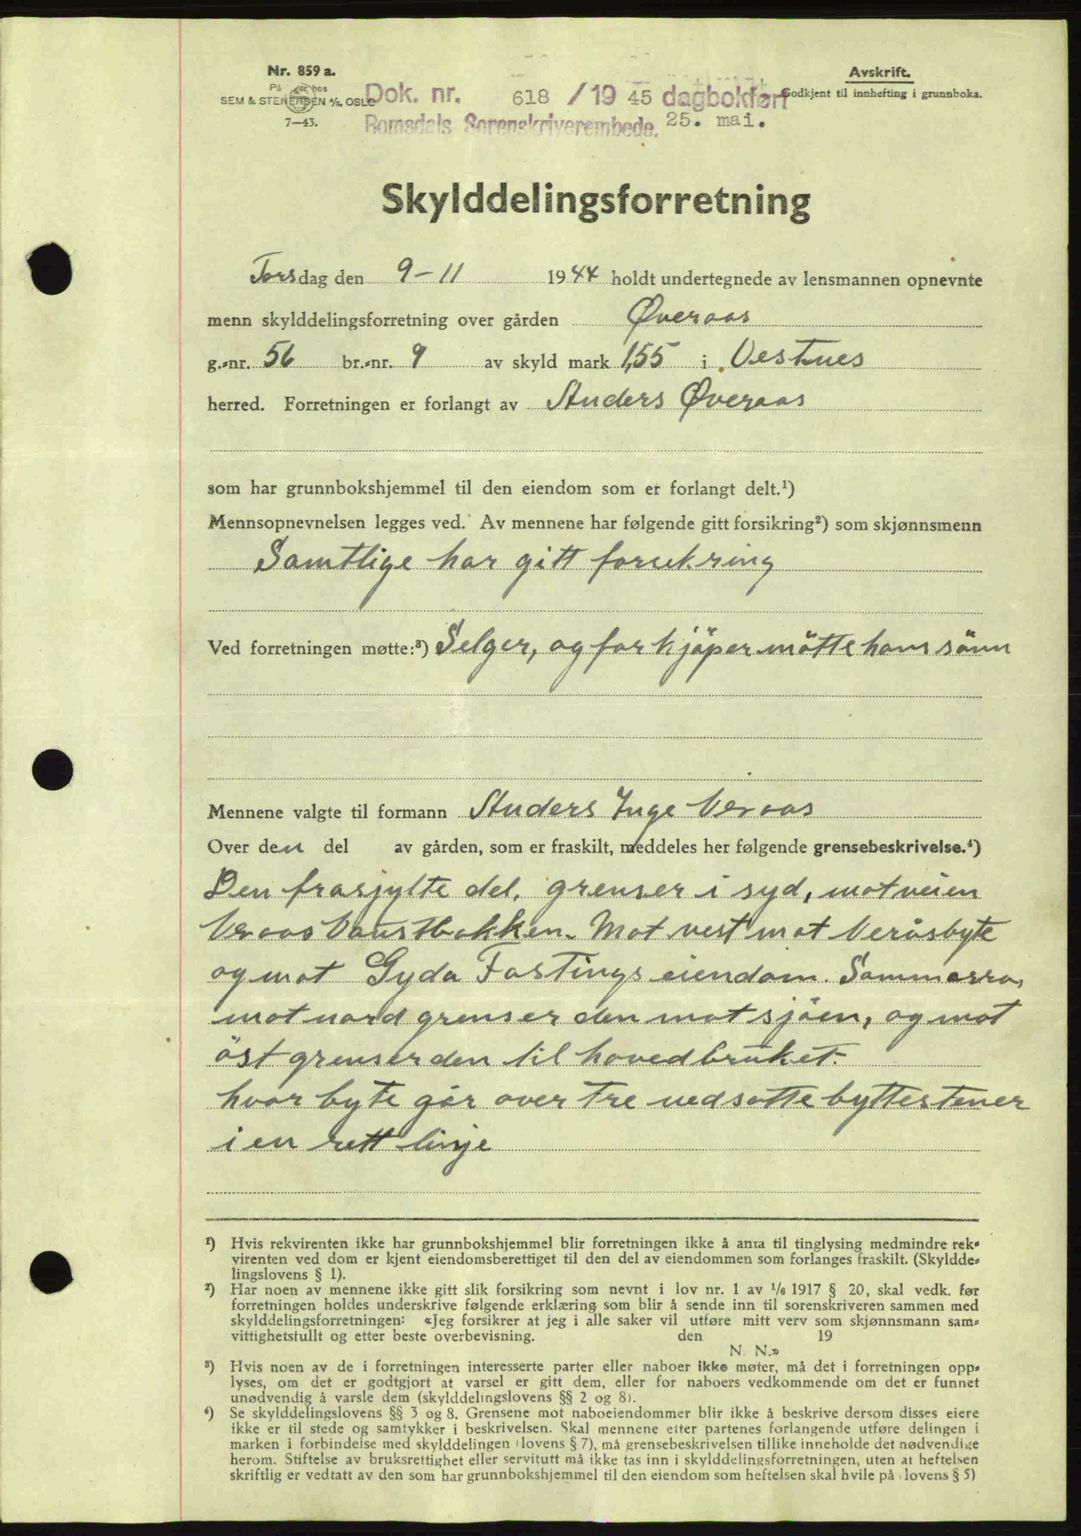 Nr. 859 a.
På lager hos
SEM & STENERSEN A/S. OSLO
7—43.
Avskrift.
Godkjent til innhefting i grunnboka.
Dok. nr. 618 /19 45 dagbokført
Romsdals Sorenskriverembede. 25. mai.
Skylddelingsforretning
Torsdag den 9-11 1944 holdt undertegnede av lensmannen opnevnte
menn skylddelingsforretning over gården Øveraas
g.-nr. 56 br.-nr. 9 av skyld mark 1,55 i Vestnes
herred. Forretningen er forlangt av Anders Øveraas
som har grunnbokshjemmel til den eiendom som er forlangt delt.¹)
Mennsopnevnelsen legges ved. Av mennene har følgende gitt forsikring²) som skjønnsmenn
Samtlige har gitt forsikring
Ved forretningen møtte:³) Selger, og for kjöper mötte hans sönn
Mennene valgte til formann Anders Inge Veraas
Over den del av gården, som er fraskilt, meddeles her følgende grensebeskrivelse.⁴)
Den frasjylte del, grenser i syd, mot veien
Veraas Vaustbakken. Mot vest mot Veråsbyte
og mot Gyda Fastings eiendom. Sommerro,
mot nord grenser den mot sjöen, og mot
öst grenser den til hovedbruket.
hvor byte går over tre nedsatte byttestener
i en rett linje
¹) Hvis rekvirenten ikke har grunnbokshjemmel blir forretningen ikke å anta til tinglysing medmindre rek-
virenten ved dom er kjent eiendomsberettiget til den del av eiendommen som forlanges fraskilt. (Skyldde-
lingslovens § 1).
²) Har noen av mennene ikke gitt slik forsikring som nevnt i lov nr. 1 av 1/6 1917 § 20, skal vedk. før
forretningen holdes underskrive følgende erklæring som blir å sende inn til sorenskriveren sammen med
skylddelingsforretningen: «Jeg forsikrer at jeg i alle saker vil utføre mitt verv som skjønnsmann sam-
vittighetsfullt og etter beste overbevisning. den 19
N. N.»
³) Hvis noen av de i forretningen interesserte parter eller naboer ikke møter, må det i forretningen opp-
lyses, om det er godtgjort at varsel er gitt dem, eller for naboers vedkommende om det er funnet
unødvendig å varsle dem (skylddelingslovens §§ 2 og 8).
⁴) Se skylddelingslovens §§ 3 og 8. Grensene mot naboeiendommer blir ikke å beskrive dersom disses eiere
ikke er til stede og samtykker i beskrivelsen. Skal mennene etter partenes forlangende utføre delingen i
marken i forbindelse med skylddelingen (lovens § 7), må grensebeskrivelsen tillike inneholde det nødvendige
herom. Stiftelse av bruksrettighet eller servitutt må ikke tas inn i skylddelingsforretningen, uten at heftelsen
skriftlig er vedtatt av den som har grunnbokshjemmel til den eiendom som heftelsen skal hvile på (lovens § 5)